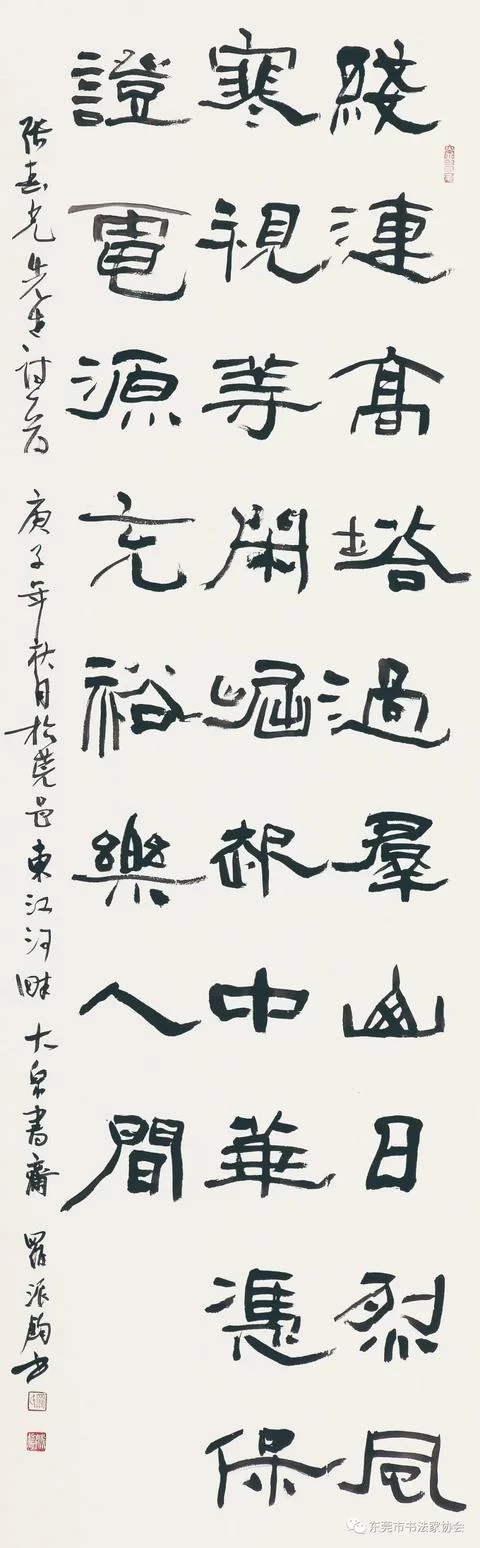 綫連高塔過羣山日烈風
寒視等閑崛起中華憑保
證電源充裕樂人間
張光先生詩一首 庚子年秋日於莞邑東江河畔 大泉書齋 羅派鈞書
东莞市书法家协会